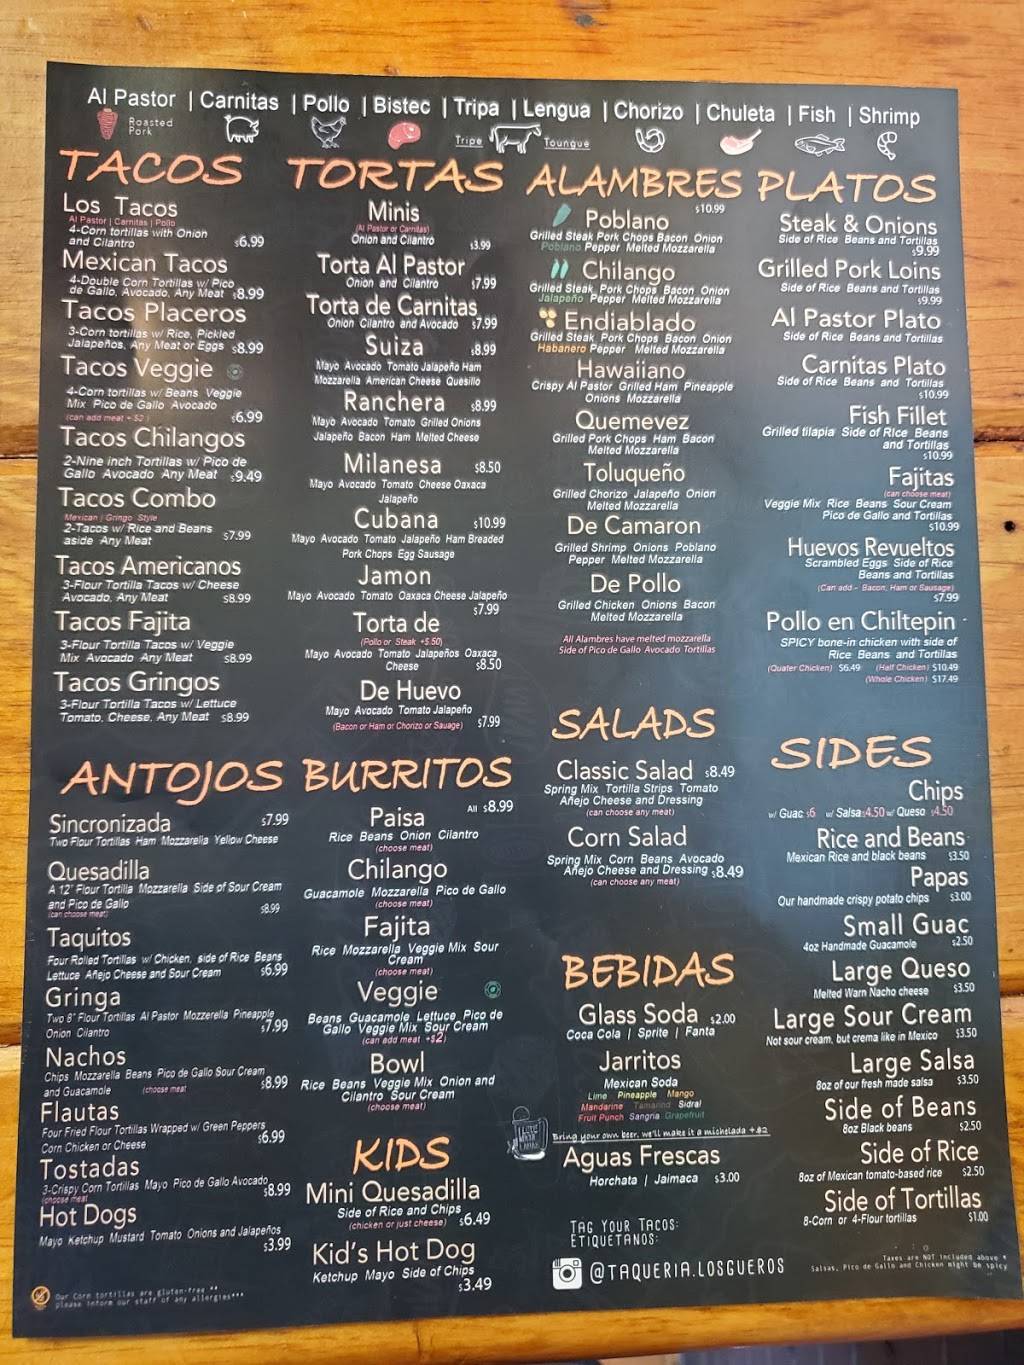 Al Pastor | Carnitas | Pollo | Bistec | Tripa | Lengua | Chorizo | Chuleta | Fish | Shrimp
Roasted
Pork
Tripe
Toungue
TACOS
Los Tacos
Al Pastor | Carnitas | Pollo
4-Corn tortillas with Onion
and Cilantro $6.99
Mexican Tacos
4-Double Corn Tortillas w/ Pico
de Gallo, Avocado, Any Meat $8.99
Tacos Placeros
3-Corn tortillas w/ Rice, Pickled
Jalapeños, Any Meat or Eggs $8.99
Tacos Veggie
4-Corn tortillas w/ Beans Veggie
Mix Pico de Gallo Avocado
(can add meat + $2 ) $6.99
Tacos Chilangos
2-Nine inch Tortillas w/ Pico de
Gallo Avocado Any Meat $9.49
Tacos Combo
Mexican | Gringo Style
2-Tacos w/ Rice and Beans
aside Any Meat $7.99
Tacos Americanos
3-Flour Tortilla Tacos w/ Cheese
Avocado, Any Meat $8.99
Tacos Fajita
3-Flour Tortilla Tacos w/ Veggie
Mix Avocado Any Meat $8.99
Tacos Gringos
3-Flour Tortilla Tacos w/ Lettuce
Tomato, Cheese, Any Meat $8.99
TORTAS
Minis
(Al Pastor or Carnitas)
Onion and Cilantro $3.99
Torta Al Pastor
Onion and Cilantro $7.99
Torta de Carnitas
Onion Cilantro and Avocado $7.99
Suiza $8.99
Mayo Avocado Tomato Jalapeño Ham
Mozzarella American Cheese Quesillo
Ranchera $8.99
Mayo Avocado Tomato Grilled Onions
Jalapeño Bacon Ham Melted Cheese
Milanesa $8.50
Mayo Avocado Tomato Cheese Oaxaca
Jalapeño
Cubana $10.99
Mayo Avocado Tomato Jalapeño Ham Breaded
Pork Chops Egg Sausage
Jamon
Mayo Avocado Tomato Oaxaca Cheese Jalapeño
$7.99
Torta de
(Pollo or Steak +$.50)
Mayo Avocado Tomato Jalapeños Oaxaca
Cheese $8.50
De Huevo
Mayo Avocado Tomato Jalapeño
(Bacon or Ham or Chorizo or Sauage) $7.99
ALAMBRES
$10.99
Poblano
Grilled Steak Pork Chops Bacon Onion
Poblano Pepper Melted Mozzarella
Chilango
Grilled Steak Pork Chops Bacon Onion
Jalapeño Pepper Melted Mozzarella
Endiablado
Grilled Steak Pork Chops Bacon Onion
Habanero Pepper Melted Mozzarella
Hawaiiano
Crispy Al Pastor Grilled Ham Pineapple
Onions Mozzarella
Quemevez
Grilled Pork Chops Ham Bacon
Melted Mozzarella
Toluqueño
Grilled Chorizo Jalapeño Onion
Melted Mozzarella
De Camaron
Grilled Shrimp Onions Poblano
Pepper Melted Mozzarella
De Pollo
Grilled Chicken Onions Bacon
Melted Mozzarella
All Alambres have melted mozzarella
Side of Pico de Gallo Avocado Tortillas
PLATOS
Steak & Onions
Side of Rice Beans and Tortillas
$9.99
Grilled Pork Loins
Side of Rice Beans and Tortillas
$9.99
Al Pastor Plato
Side of Rice Beans and Tortillas
Carnitas Plato
Side of Rice Beans and Tortillas
$10.99
Fish Fillet
Grilled tilapia Side of RIce Beans
and Tortillas
$10.99
Fajitas
(can choose meat)
Veggie Mix Rice Beans Sour Cream
Pico de Gallo and Tortillas
$10.99
Huevos Revueltos
Scrambled Eggs Side of Rice
Beans and Tortillas
(Can add - Bacon, Ham or Sausage)
$7.99
Pollo en Chiltepin
SPICY bone-in chicken with side of
Rice Beans and Tortillas
(Quater Chicken) $6.49 (Half Chicken) $10.49
(Whole Chicken) $17.49
ANTOJOS
Sincronizada $7.99
Two Flour Tortillas Ham Mozzarella Yellow Cheese
Quesadilla
A 12" Flour Tortilla Mozzarella Side of Sour Cream
and Pico de Gallo
(can choose meat) $8.99
Taquitos
Four Rolled Tortillas w/ Chicken, side of Rice Beans
Lettuce Añejo Cheese and Sour Cream $6.99
Gringa
Two 8" Flour Tortillas Al Pastor Mozzerella Pineapple
Onion Cilantro $7.99
Nachos
Chips Mozzarella Beans Pico de Gallo Sour Cream
and Guacamole (choose meat $8.99
Flautas
Four Fried Flour Tortillas Wrapped w/ Green Peppers
Corn Chicken or Cheese $6.99
Tostadas
3-Crispy Corn Tortillas Mayo Pico de Gallo Avocado
(choose meat $8.99
Hot Dogs
Mayo Ketchup Mustard Tomato Onions and Jalapeños
$3.99
BURRITOS
All $8.99
Paisa
Rice Beans Onion Cilantro
(choose meat)
Chilango
Guacamole Mozzarella Pico de Gallo
(choose meat)
Fajita
Rice Mozzarella Veggie Mix Sour
Cream
(choose meat)
Veggie
Beans Guacamole Lettuce Pico de
Gallo Veggie Mix Sour Cream
(can add meat +$2)
Bowl
Rice Beans Veggie Mix Onion and
Cilantro Sour Cream
(choose meat)
KIDS
Mini Quesadilla
Side of Rice and Chips
(chicken or just cheese) $6.49
Kid's Hot Dog
Ketchup Mayo Side of Chips
$3.49
SALADS
Classic Salad $8.49
Spring Mix Tortilla Strips Tomato
Añejo Cheese and Dressing
(can choose any meat)
Corn Salad
Spring Mix Corn Beans Avocado
Añejo Cheese and Dressing $8.49
(can choose any meat)
BEBIDAS
Glass Soda $2.00
Coca Cola | Sprite | Fanta
Jarritos
Mexican Soda
Lime Pineapple Mango
Mandarine Tamarind Sidral
Fruit Punch Sangria Grapefruit
Bring your own beer, we'll make it a michelada +$2
Aguas Frescas
Horchata | Jaimaca $3.00
TAG YOUR TACOS:
ETIQUETANOS:
@TAQUERIA.LOSGUEROS
SIDES
Chips
w/ Guac $6 w/ Salsa $4.50 w/ Queso $4.50
Rice and Beans
Mexican Rice and black beans $3.50
Papas
Our handmade crispy potato chips $3.00
Small Guac
4oz Handmade Guacamole $2.50
Large Queso
Melted Warn Nacho cheese $3.50
Large Sour Cream
Not sour cream, but crema like in Mexico $3.50
Large Salsa
8oz of our fresh made salsa $3.50
Side of Beans
8oz Black beans $2.50
Side of Rice
8oz of Mexican tomato-based rice $2.50
Side of Tortillas
8-Corn or 4-Flour tortillas $1.00
Taxes are NOT included above *
Salsas, Pico de Gallo and Chicken might be spicy
Our Corn tortillas are gluten-free **
please inform our staff of any allergies***